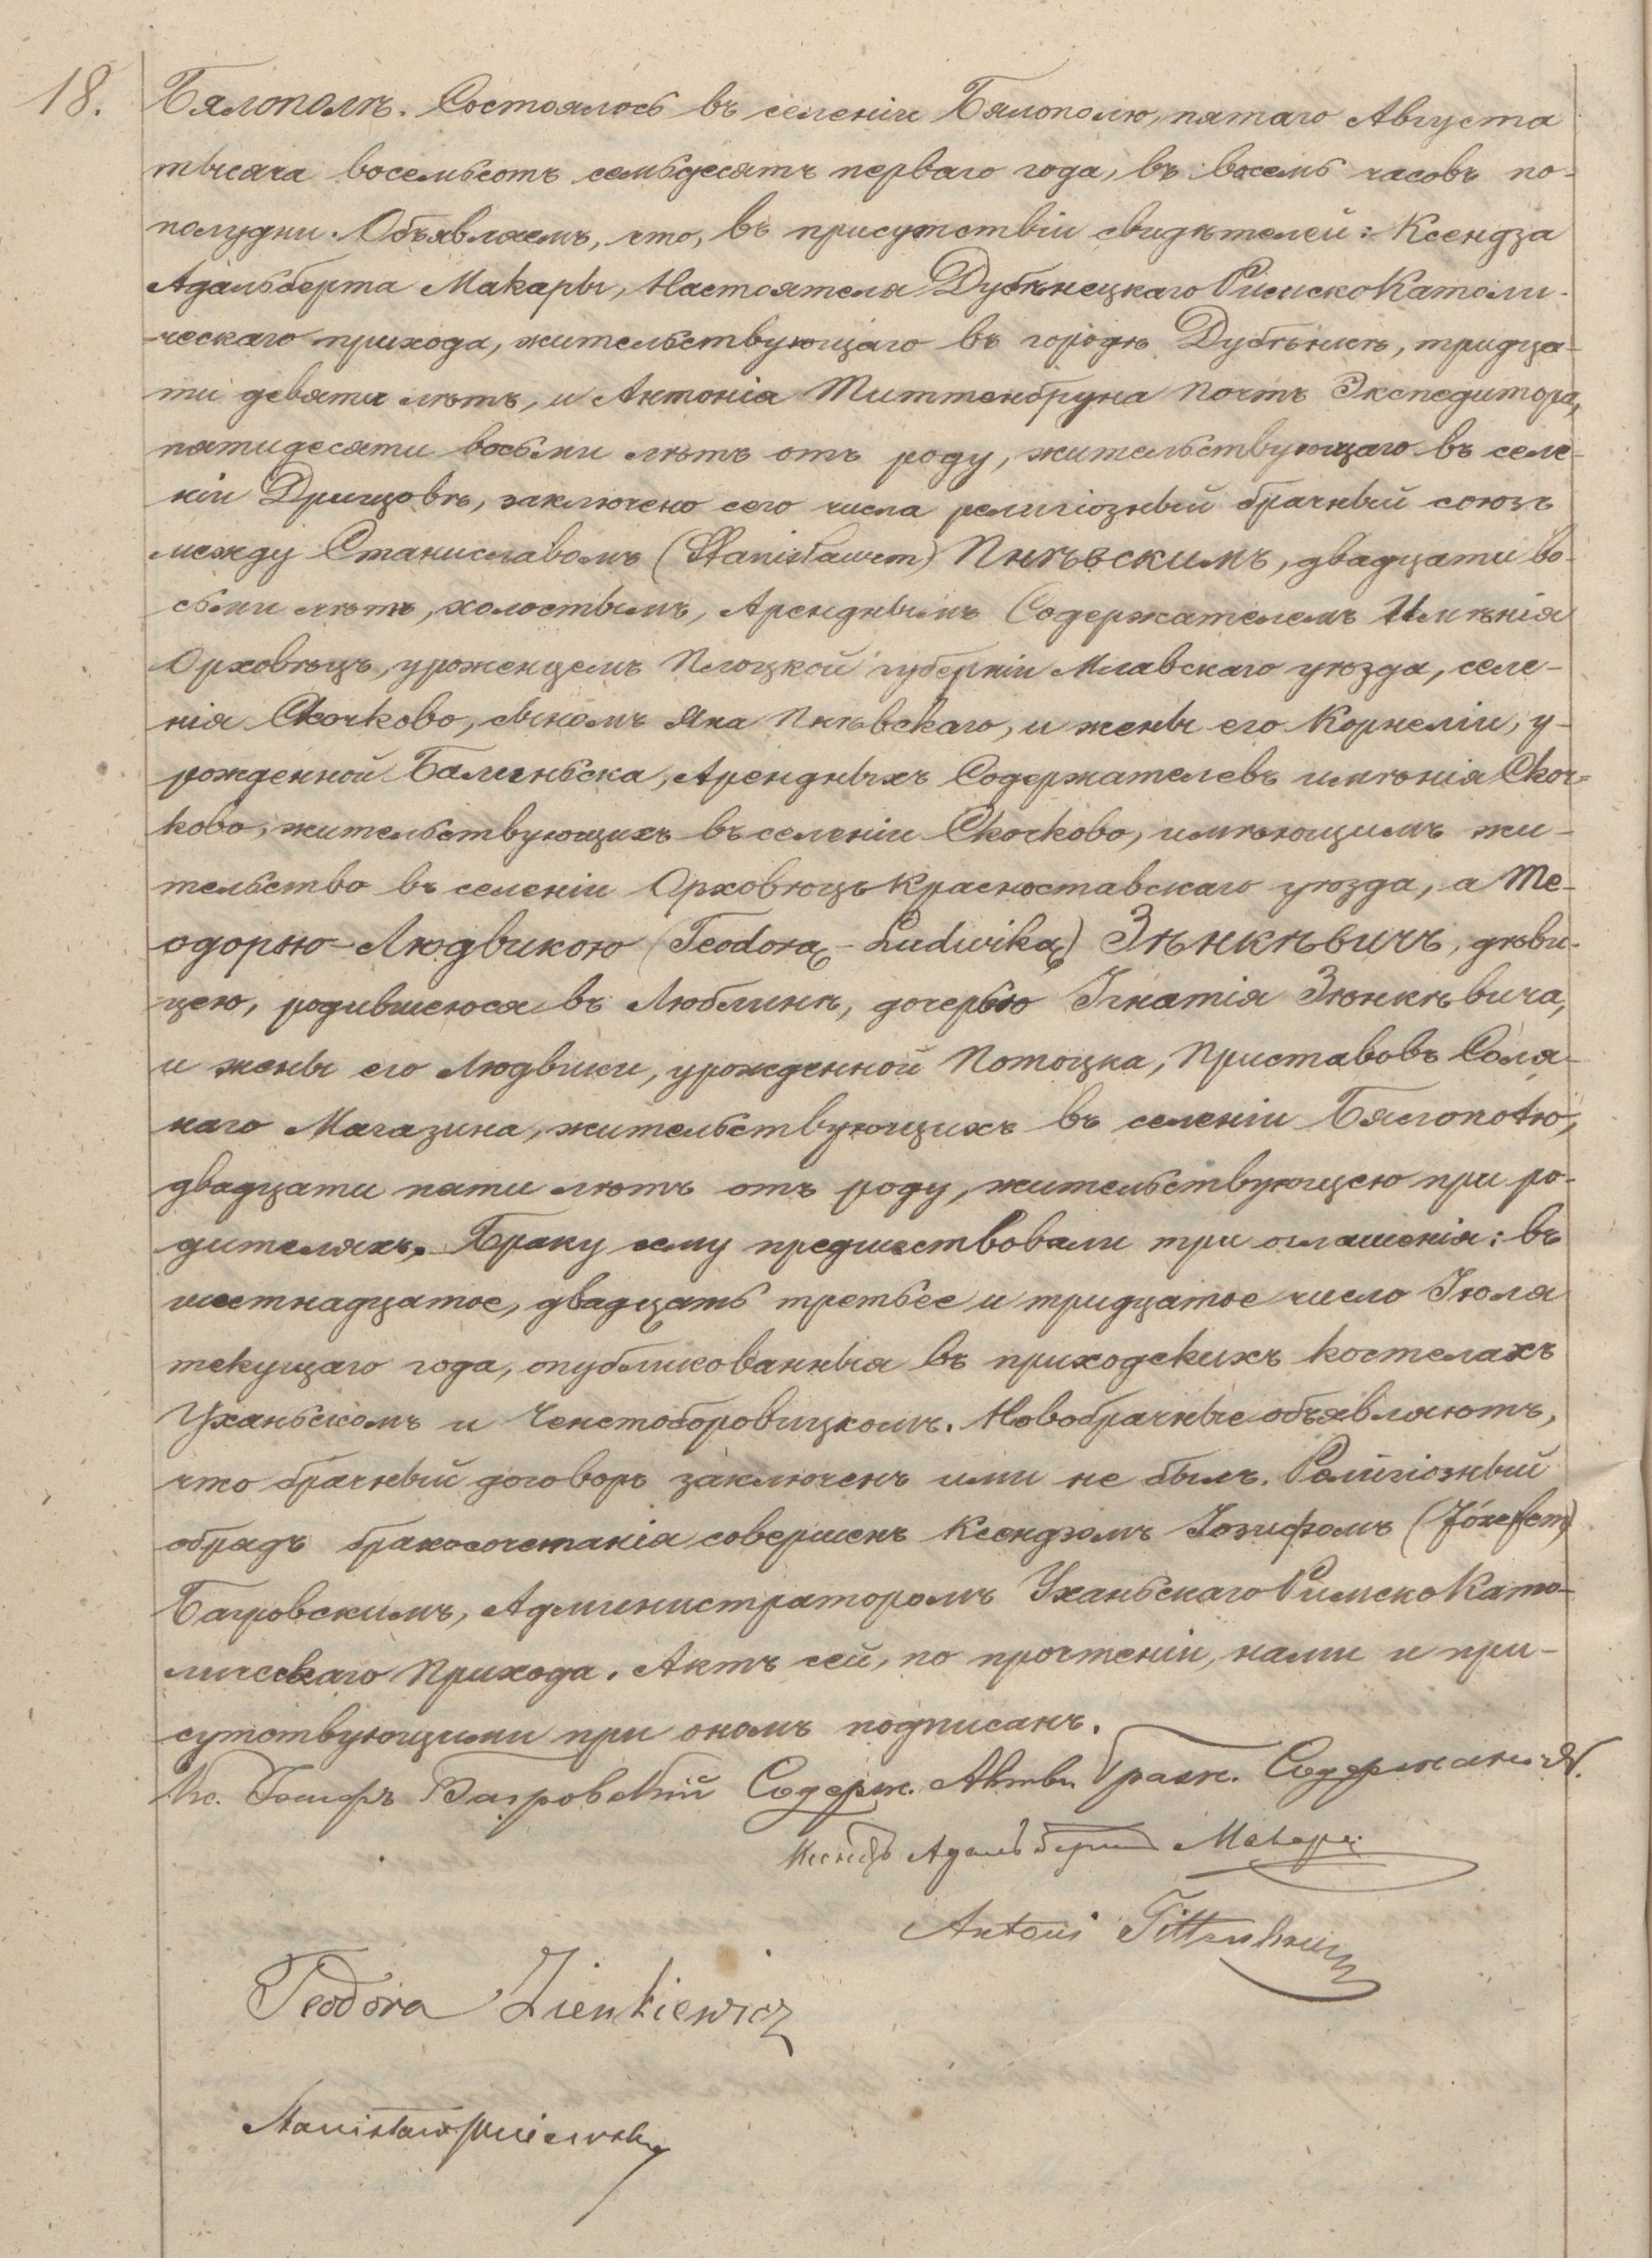 18.
Бялополѣ. Состоялось въ селеніи Бялополю, пятаго Августа
тысяча восемьсотъ семьдесятъ перваго года, въ восемь часовъ по-
полудни. Объявляемъ, что, въ присутствіи свидѣтелей: Ксендза
Адальберта Макары, Настоятеля Дубѣнецкаго РимскоКатоли-
ческаго прихода, жительствующаго въ городѣ Дубѣнкѣ, тридца-
ти девяти лѣтъ, и Антонія Титтенбруна Почтъ Экспедитора,
пятидесяти восьми лѣтъ отъ роду, жительствующаго въ селе-
ніи Дрищовѣ, заключено сего числа религіозный брачный союзъ
между Станиславомъ (Stanisławem) Пнѣвскимъ, двадцати во-
сьми лѣтъ, холостымъ, Аренднымъ Содержателемъ Имѣнія
Орховѣцъ, уроженцемъ Плоцкой губерніи Млавскаго уѣзда, селе-
нія Скочково, сыномъ Яна Пнѣвскаго, и жены его Корнеліи, у-
рожденной Балиньска, Арендныхъ Содержателевъ имѣнія Скоч=
ково, жительствующихъ въ селеніи Скочково, имѣющимъ жи-
тельство въ селеніи Орховѣцъ Красноставскаго уѣзда, а Те-
одорою-Людвикою (Teodorą-Ludwiką) Зѣнкѣвичъ, дѣви-
цею, родившеюся въ Люблинѣ, дочерью Игнатія Зѣнкѣвича,
и жены его Людвики, урожденной Потоцка, Приставовъ Соля-
наго Магазина, жительствующихъ въ селеніи Бялополю,
двадцати пяти лѣтъ отъ роду, жительствующею при ро-
дителяхъ. Браку сему предшествовали три оглашенія: въ
шестнадцатое, двадцать третьее и тридцатое число Іюля
текущаго года, опубликованныя въ приходскихъ костелахъ
Уханьскомъ и Ченстоборовицкомъ. Новобрачные объявляютъ,
что брачный договоръ заключенъ ими не былъ. Религіозный
обрядъ бракосочетанія совершенъ Ксендзомъ Іозифомъ (Józefem)
Багровскимъ, Администраторомъ Уханьскаго РимскоКато-
лическаго Прихода. Актъ сей, по прочтеніи, нами и при-
сутствующими при ономъ подписанъ.
Кс. Іосифъ Багровскій Содерж. Акты Гражд.
Ксендзъ Адальбертъ Макары
Antoni Tittenbrun
Teodora Zienkiewicz
Stanisław Pniewski